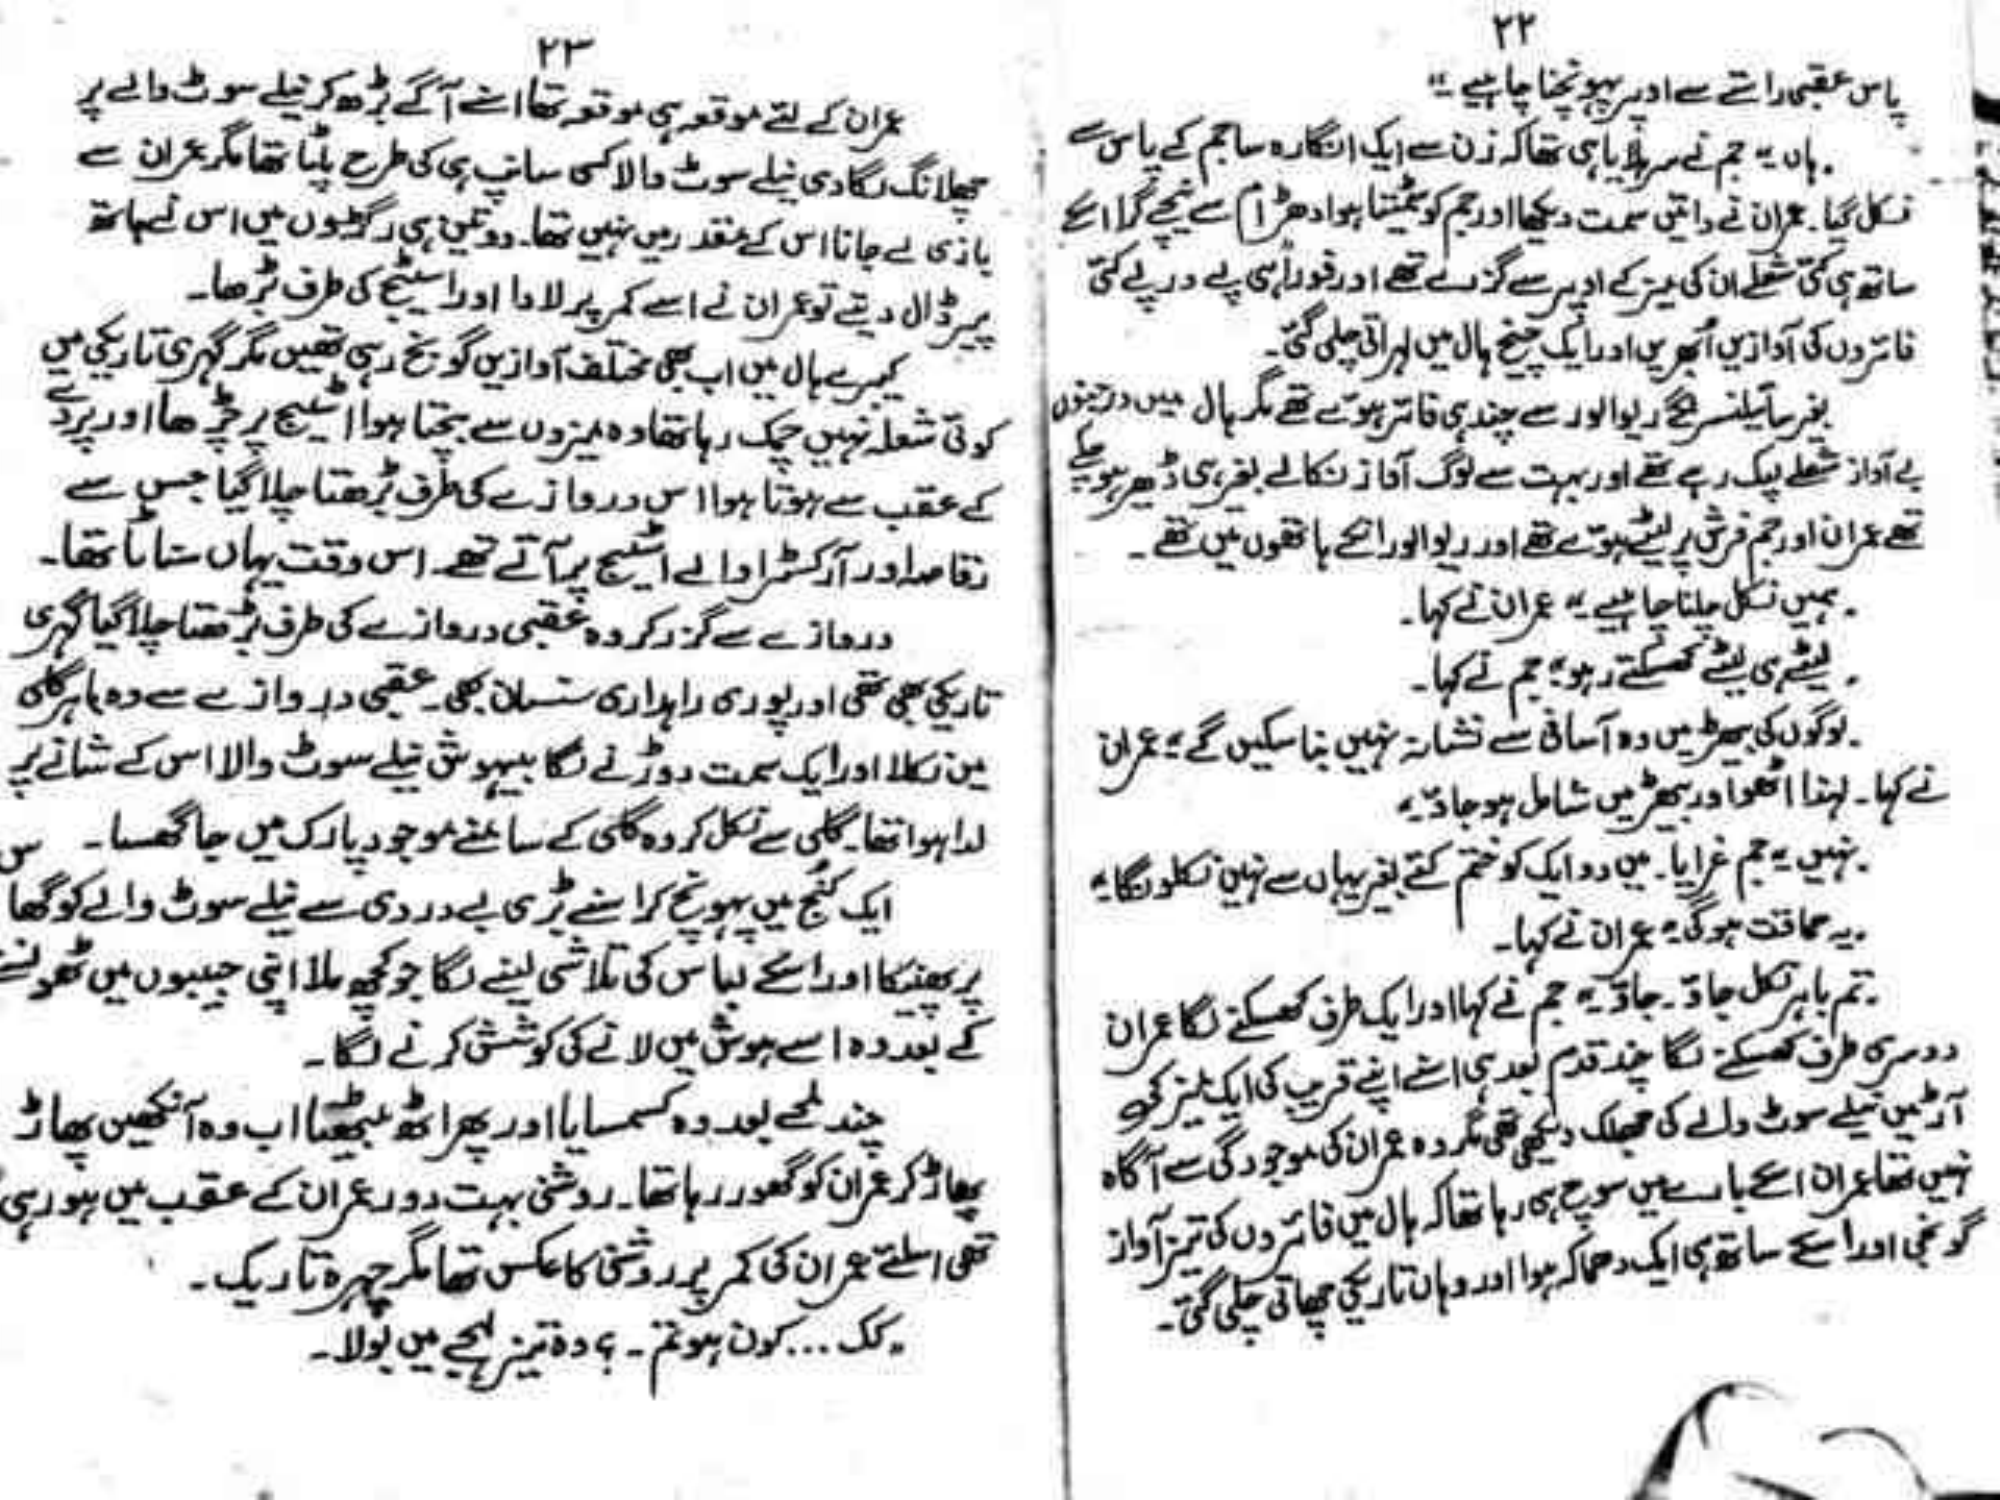 ۲۲
پاس عقبی راستے سے اوپر پہونچنا چاہیے ۔"
"ہاں" جم نے سر ہلایا ہی تھا کہ زن سے ایک انگارہ سا جم کے پاس سے
نکل گیا۔ عمران نے دائیں سمت دیکھا اور جم کو سمیٹتا ہوا دھڑام سے نیچے گرا اسکے
ساتھ ہی کئی شعلے ان کی میز کے اوپر سے گزرے تھے اور فوراً ہی پے در پے کئی
فائروں کی آوازیں اُبھریں اور ایک چیخ ہال میں لہراتی چلی گئی۔
بغیر سائیلنسر لگے ریوالور سے چند ہی فائر ہوئے تھے مگر ہال میں درجنوں
بے آواز شعلے لپک رہے تھے اور بہت سے لوگ آواز نکالے بغیر ہی ڈھیر ہو چکے
تھے عمران اور جم فرش پر لیٹے ہوئے تھے اور ریوالور انکے ہاتھوں میں تھے ۔
"ہمیں نکل چلنا چاہیے" عمران نے کہا۔
"لیٹے ہی لیٹے کھسکتے رہو" جم نے کہا۔
"لوگوں کی بھیڑ میں وہ آسانی سے نشانہ نہیں بنا سکیں گے" عمران
نے کہا۔ لہذا اٹھو اور بھیڑ میں شامل ہو جاؤ"
"نہیں" جم غرایا۔ میں دو ایک کو ختم کئے بغیر یہاں سے نہیں نکلونگا"
"یہ حماقت ہوگی" عمران نے کہا۔
"تم باہر نکل جاؤ۔ جاؤ" جم نے کہا اور ایک طرف کھسکنے لگا عمران
دوسری طرف کھسکنے لگا چند قدم بعد ہی اسنے اپنے قریب کی ایک میز کی
آڑ میں نیلے سوٹ والے کی جھلک دیکھی تھی مگر وہ عمران کی موجودگی سے آگاہ
نہیں تھا عمران اسکے بارے میں سوچ ہی رہا تھا کہ ہال میں فائروں کی تیز آواز
گونجی اور اسکے ساتھ ہی ایک دھماکہ ہوا اور وہاں تاریکی چھاتی چلی گئی۔
۲۳
عمران کے لئے موقعہ ہی موقعہ تھا اسنے آگے بڑھ کر نیلے سوٹ والے پر
چھلانگ لگا دی نیلے سوٹ والا کسی سانپ ہی کی طرح پلٹا تھا مگر عمران سے
بازی لے جانا اس کے مقدر میں نہیں تھا۔ دو تین ہی رگڑیوں میں اس نے ہاتھ
پیر ڈال دیئے تو عمران نے اسے کمر پر لادا اور اسٹیج کی طرف بڑھا۔
کیمرے ہال میں اب بھی مختلف آوازیں گونج رہی تھیں مگر گہری تاریکی میں
کوئی شعلہ نہیں چمک رہا تھا وہ میزوں سے بچتا ہوا اسٹیج پر چڑھا اور پردے
کے عقب سے ہوتا ہوا اس دروازے کی طرف بڑھتا چلا گیا جس سے
رقاصہ اور آرکسٹرا والے اسٹیج پر آتے تھے۔ اس وقت یہاں سناٹا تھا۔
دروازے سے گزر کر وہ عقبی دروازے کی طرف بڑھتا چلا گیا گہری
تاریکی بھی تھی اور پوری راہداری سنسان بھی۔ عقبی دروازے سے وہ باہر گلی
میں نکلا اور ایک سمت دوڑنے لگا بیہوش نیلے سوٹ والا اس کے شانے پر
لدا ہوا تھا۔ گلی سے نکل کر وہ گلی کے سامنے موجود پارک میں جا گھسا۔
ایک کنج میں پہونچ کر اسنے بڑی بے دردی سے نیلے سوٹ والے کو گھاس
پر پھینکا اور اسکے لباس کی تلاشی لینے لگا جو کچھ ملا اپنی جیبوں میں ٹھونسنے
کے بعد وہ اسے ہوش میں لانے کی کوشش کرنے لگا۔
چند لمحے بعد وہ کسمسایا اور پھر اٹھ بیٹھا اب وہ آنکھیں پھاڑ
پھاڑ کر عمران کو گھور رہا تھا۔ روشنی بہت دور عمران کے عقب میں ہو رہی
تھی اسلئے عمران کی کمر پر روشنی کا عکس تھا مگر چہرہ تاریک۔
"کک ... کون ہو تم ۔ ؟ وہ تیز لہجے میں بولا۔